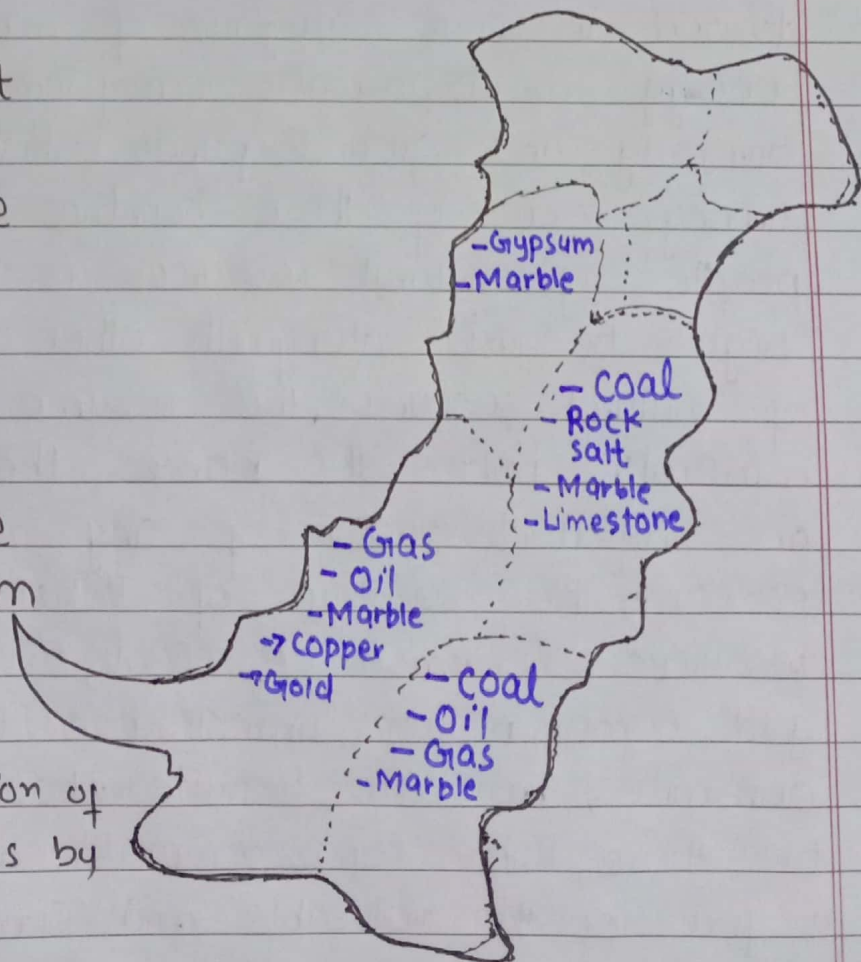 t
e
- Gypsum
- Marble
- Coal
- Rock
salt
- Marble
- Limestone
- Gas
- Oil
n
- Marble
→ Copper
→ Gold
- Coal
- Oil
- Gas
- Marble
on of
s by